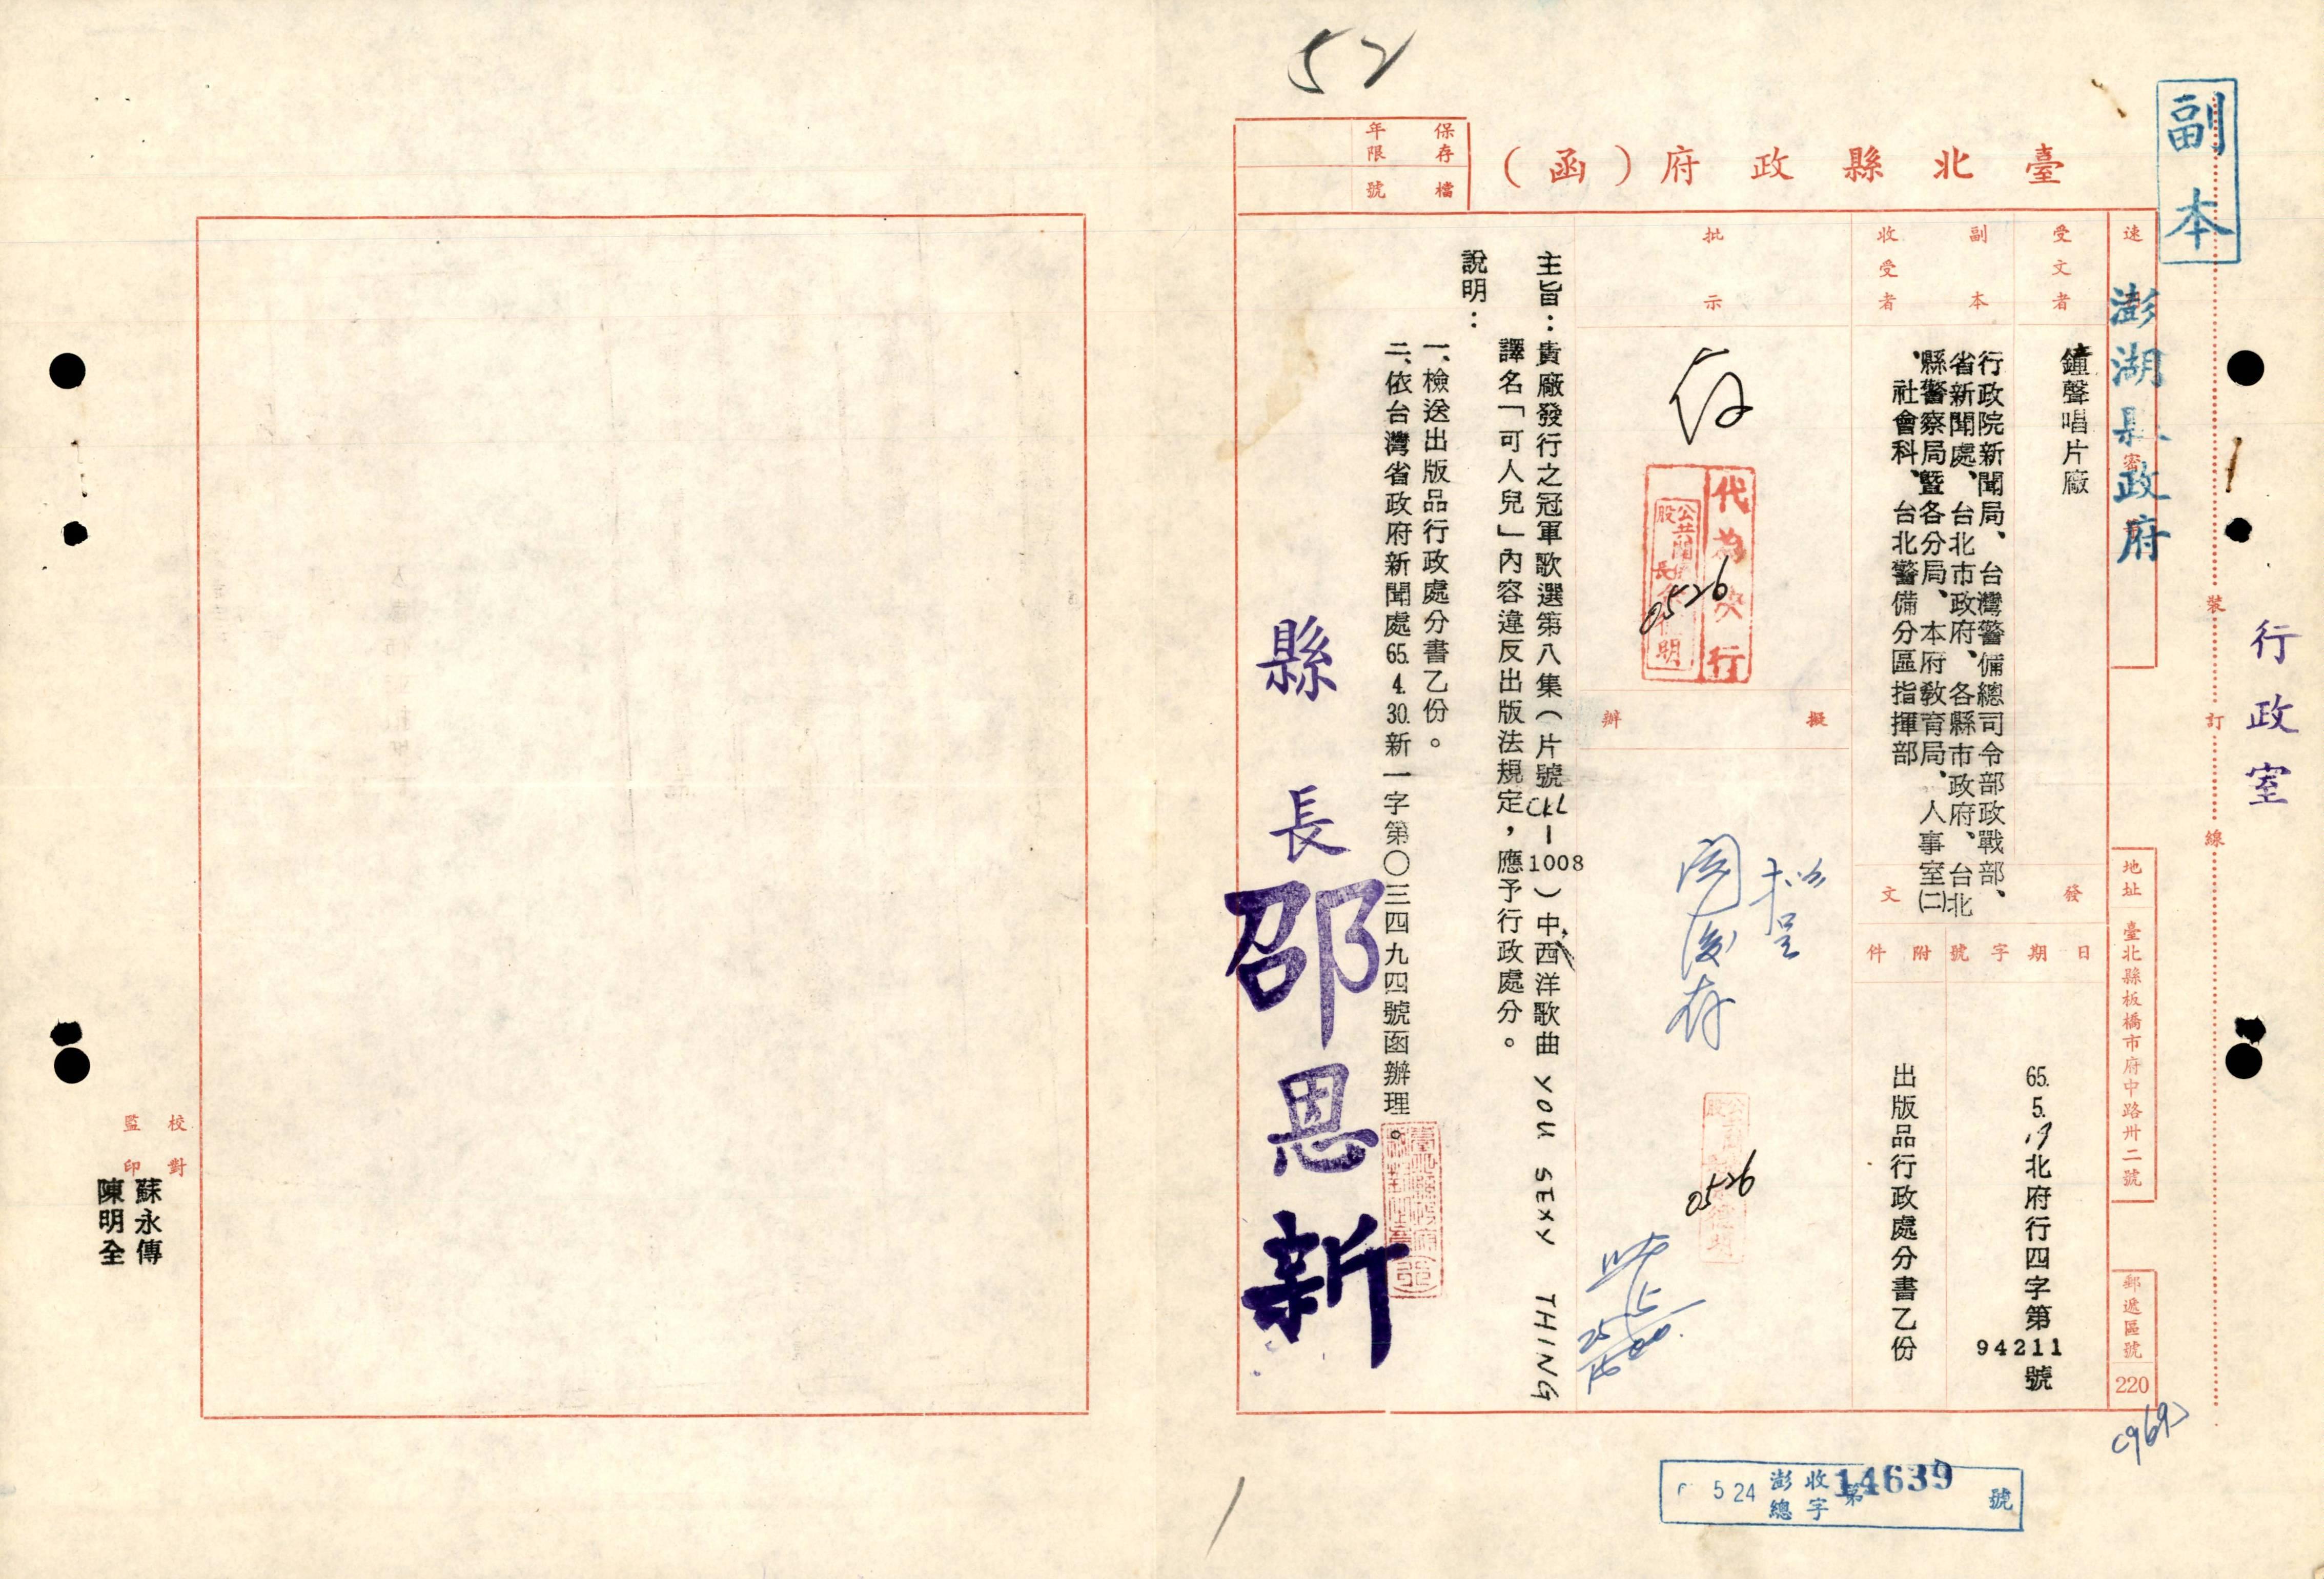 52
副本
臺北縣政府(函)
保存年限
檔號
澎湖縣政府
行政室
裝
訂
線
速別
密
受文者
鐘聲唱片廠
副本收受者
行政院新聞局、台灣警備總司令部政戰部、
省新聞處、台北市政府、各縣市政府、台北
縣警察局暨各分局、本府敎育局、人事室㈡
、社會科、台北警備分區指揮部
發文
日期
字號
附件
65. 5. 19北府行四字第94211號
出版品行政處分書乙份
地址
臺北縣板橋市府中路卅二號
郵遞區號
220
批示
存
代為決行
0526
擬辦
擬呈
閱後存
0526
主旨：貴廠發行之冠軍歌選第八集（片號CKL－1008）中西洋歌曲 YOU SEXY THING
譯名「可人兒」內容違反出版法規定，應予行政處分。
說明：
一、檢送出版品行政處分書乙份。
二、依台灣省政府新聞處65. 4. 30.新一字第〇三四九四號函辦理。
縣長邵恩新
校對
蘇永傳
監印
陳明全
5 24
澎收總字第14639號